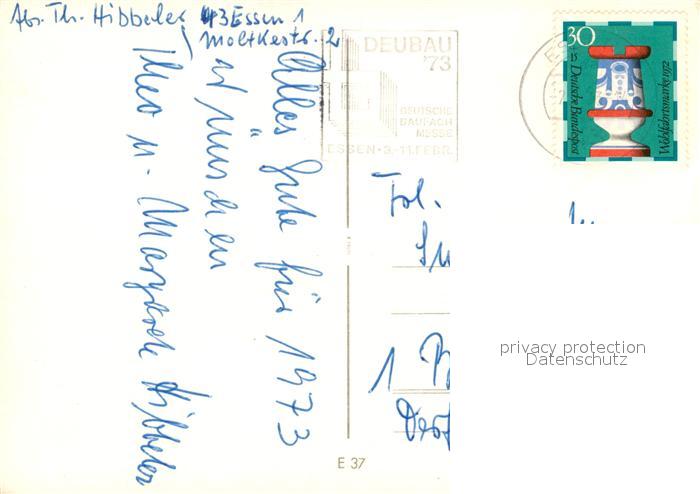 Abs. Th. Hibbeler 43 Essen 1
Moltkestr. 2
Alles Gute für 1973
wünschen
Theo u. Margarete Hibbeler
DEUBAU
'73
DEUTSCHE
BAUFACH
MESSE
ESSEN·3.-11.FEBR.
30
+15 Deutsche Bundespost
Wohlfahrtsmarke 1972
ES
Frl.
1
privacy protection
Datenschutz
E 37